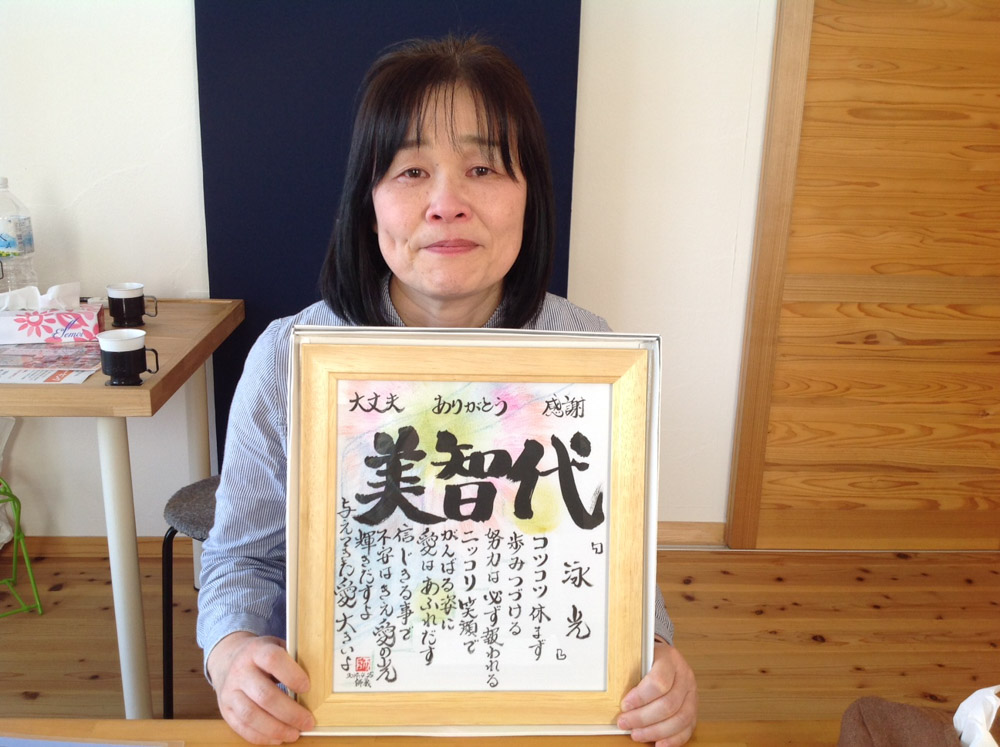 大丈夫 ありがとう 感謝
美智代
『泳光』
コツコツ休まず
歩みつづける
努力は必ず報われる
ニッコリ笑顔で
がんばる姿に
愛はあふれだす
信じきる事で
不安はきえ愛の光
輝きだすよ
与えてきた愛大きいよ